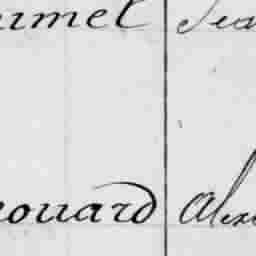 umel Jea
ouard Alex